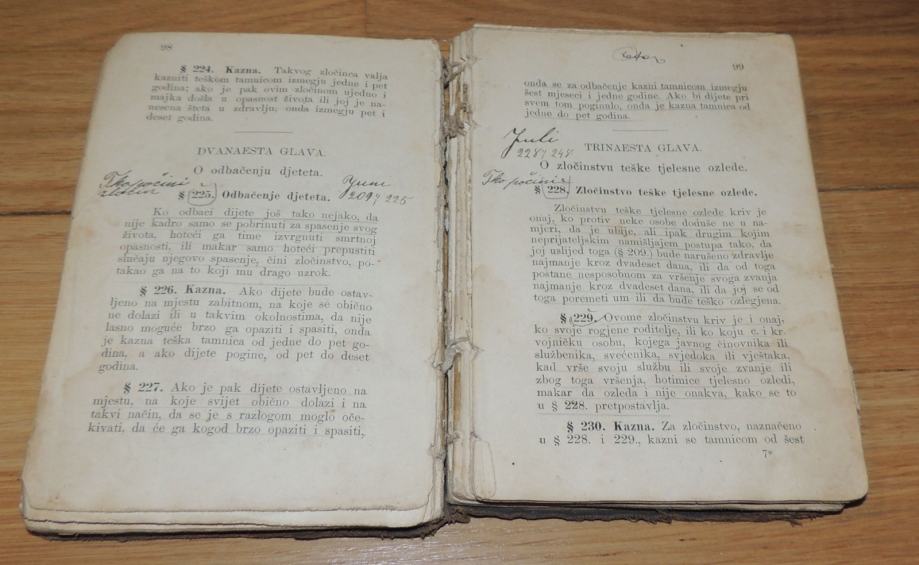 98
§ 224. Kazna. Takvog zločinca valja
kazniti teškom tamnicom izmegju jedne i pet
godina; ako je pak ovim zločinom ujedno i
majka došla u opasnost života ili joj je na-
nesena šteta u zdravlju; onda izmegju pet i
deset godina.
DVANAESTA GLAVA.
O odbačenju djeteta.
Tko počini
zločin
Juni
209 225
§ 225. Odbačenje djeteta.
Ko odbaci dijete još tako nejako, da
nije kadro samo se pobrinuti za spasenje svog
života, hoteći ga time izvrgnuti smrtnoj
opasnosti, ili makar samo hoteći prepustiti
slučaju njegovo spasenje, čini zločinstvo, po-
takao ga na to koji mu drago uzrok.
§ 226. Kazna. Ako dijete bude ostav-
ljeno na mjestu zabitnom, na koje se obično
ne dolazi ili u takvim okolnostima, da nije
lasno moguće brzo ga opaziti i spasiti, onda
je kazna teška tamnica od jedne do pet go-
dina, a ako dijete pogine, od pet do deset
godina.
§ 227. Ako je pak dijete ostavljeno na
mjestu, na koje svijet obično dolazi i na
takvi način, da se je s razlogom moglo oče-
kivati, da će ga kogod brzo opaziti i spasiti,
99
onda se za odbačenje kazni tamnicom izmegju
šest mjeseci i jedne godine. Ako bi dijete pri
svem tom poginulo, onda je kazna tamnica od
jedne do pet godina.
Juli
228 248
TRINAESTA GLAVA.
O zločinstvu teške tjelesne ozlede.
Tko počini
§ 228. Zločinstvo teške tjelesne ozlede.
Zločinstvu teške tjelesne ozlede kriv je
onaj, ko protiv neke osobe doduše ne u na-
mjeri, da je ubije, ali ipak drugim kojim
neprijateljskim namišljajem postupa tako, da
joj uslijed toga (§ 209.) bude narušeno zdravlje
najmanje kroz dvadeset dana, ili da od toga
postane nesposobnom za vršenje svoga zvanja
najmanje kroz dvadeset dana, ili da joj se od
toga poremeti um ili da bude teško ozlegjena.
§ 229. Ovome zločinstvu kriv je i onaj,
ko svoje rogjene roditelje, ili ko koju c. i kr.
vojničku osobu, kojega javnog činovnika ili
službenika, svećenika, svjedoka ili vještaka,
kad vrše svoju službu ili svoje zvanje ili
zbog toga vršenja, hotimice tjelesno ozledi,
makar da ozleda i nije onakva, kako se to
u § 228. pretpostavlja.
§ 230. Kazna. Za zločinstvo, naznačeno
u § 228. i 229., kazni se tamnicom od šest
7*